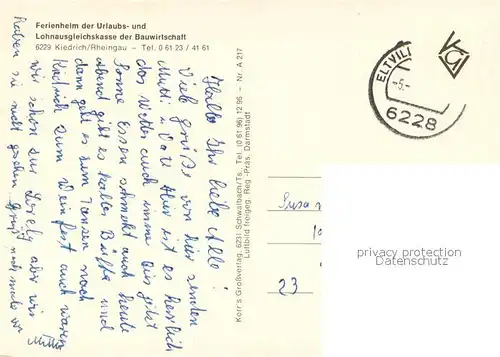 Ferienheim der Urlaubs- und
Lohnausgleichskasse der Bauwirtschaft
6229 Kiedrich/Rheingau – Tel. 0 61 23 / 41 61
Hallo Ihr liebe Alle!
Viele Grüße von hier senden
Mutti u. Vati Hier ist es herrlich
das Wetter auch immer bis jetzt
Sonne Essen schmeckt auch heute
abend gibt es kaltes Büffe und
dann geht es zum Tanzen nach
Kiedrich zum Weinfest auch waren
wir schon zur Lorely aber wir
haben sie nicht gesehen. Grüß nochmals
Kerr's Großverlag, 6231 Schwalbach/Ts., Tel. (0 61 96) 12 96 – Nr. A 217
Luftbild freigeg. Reg.-Präs. Darmstadt
ELTVILL
-5.-
6228
Susa
23
privacy protection
Datenschutz